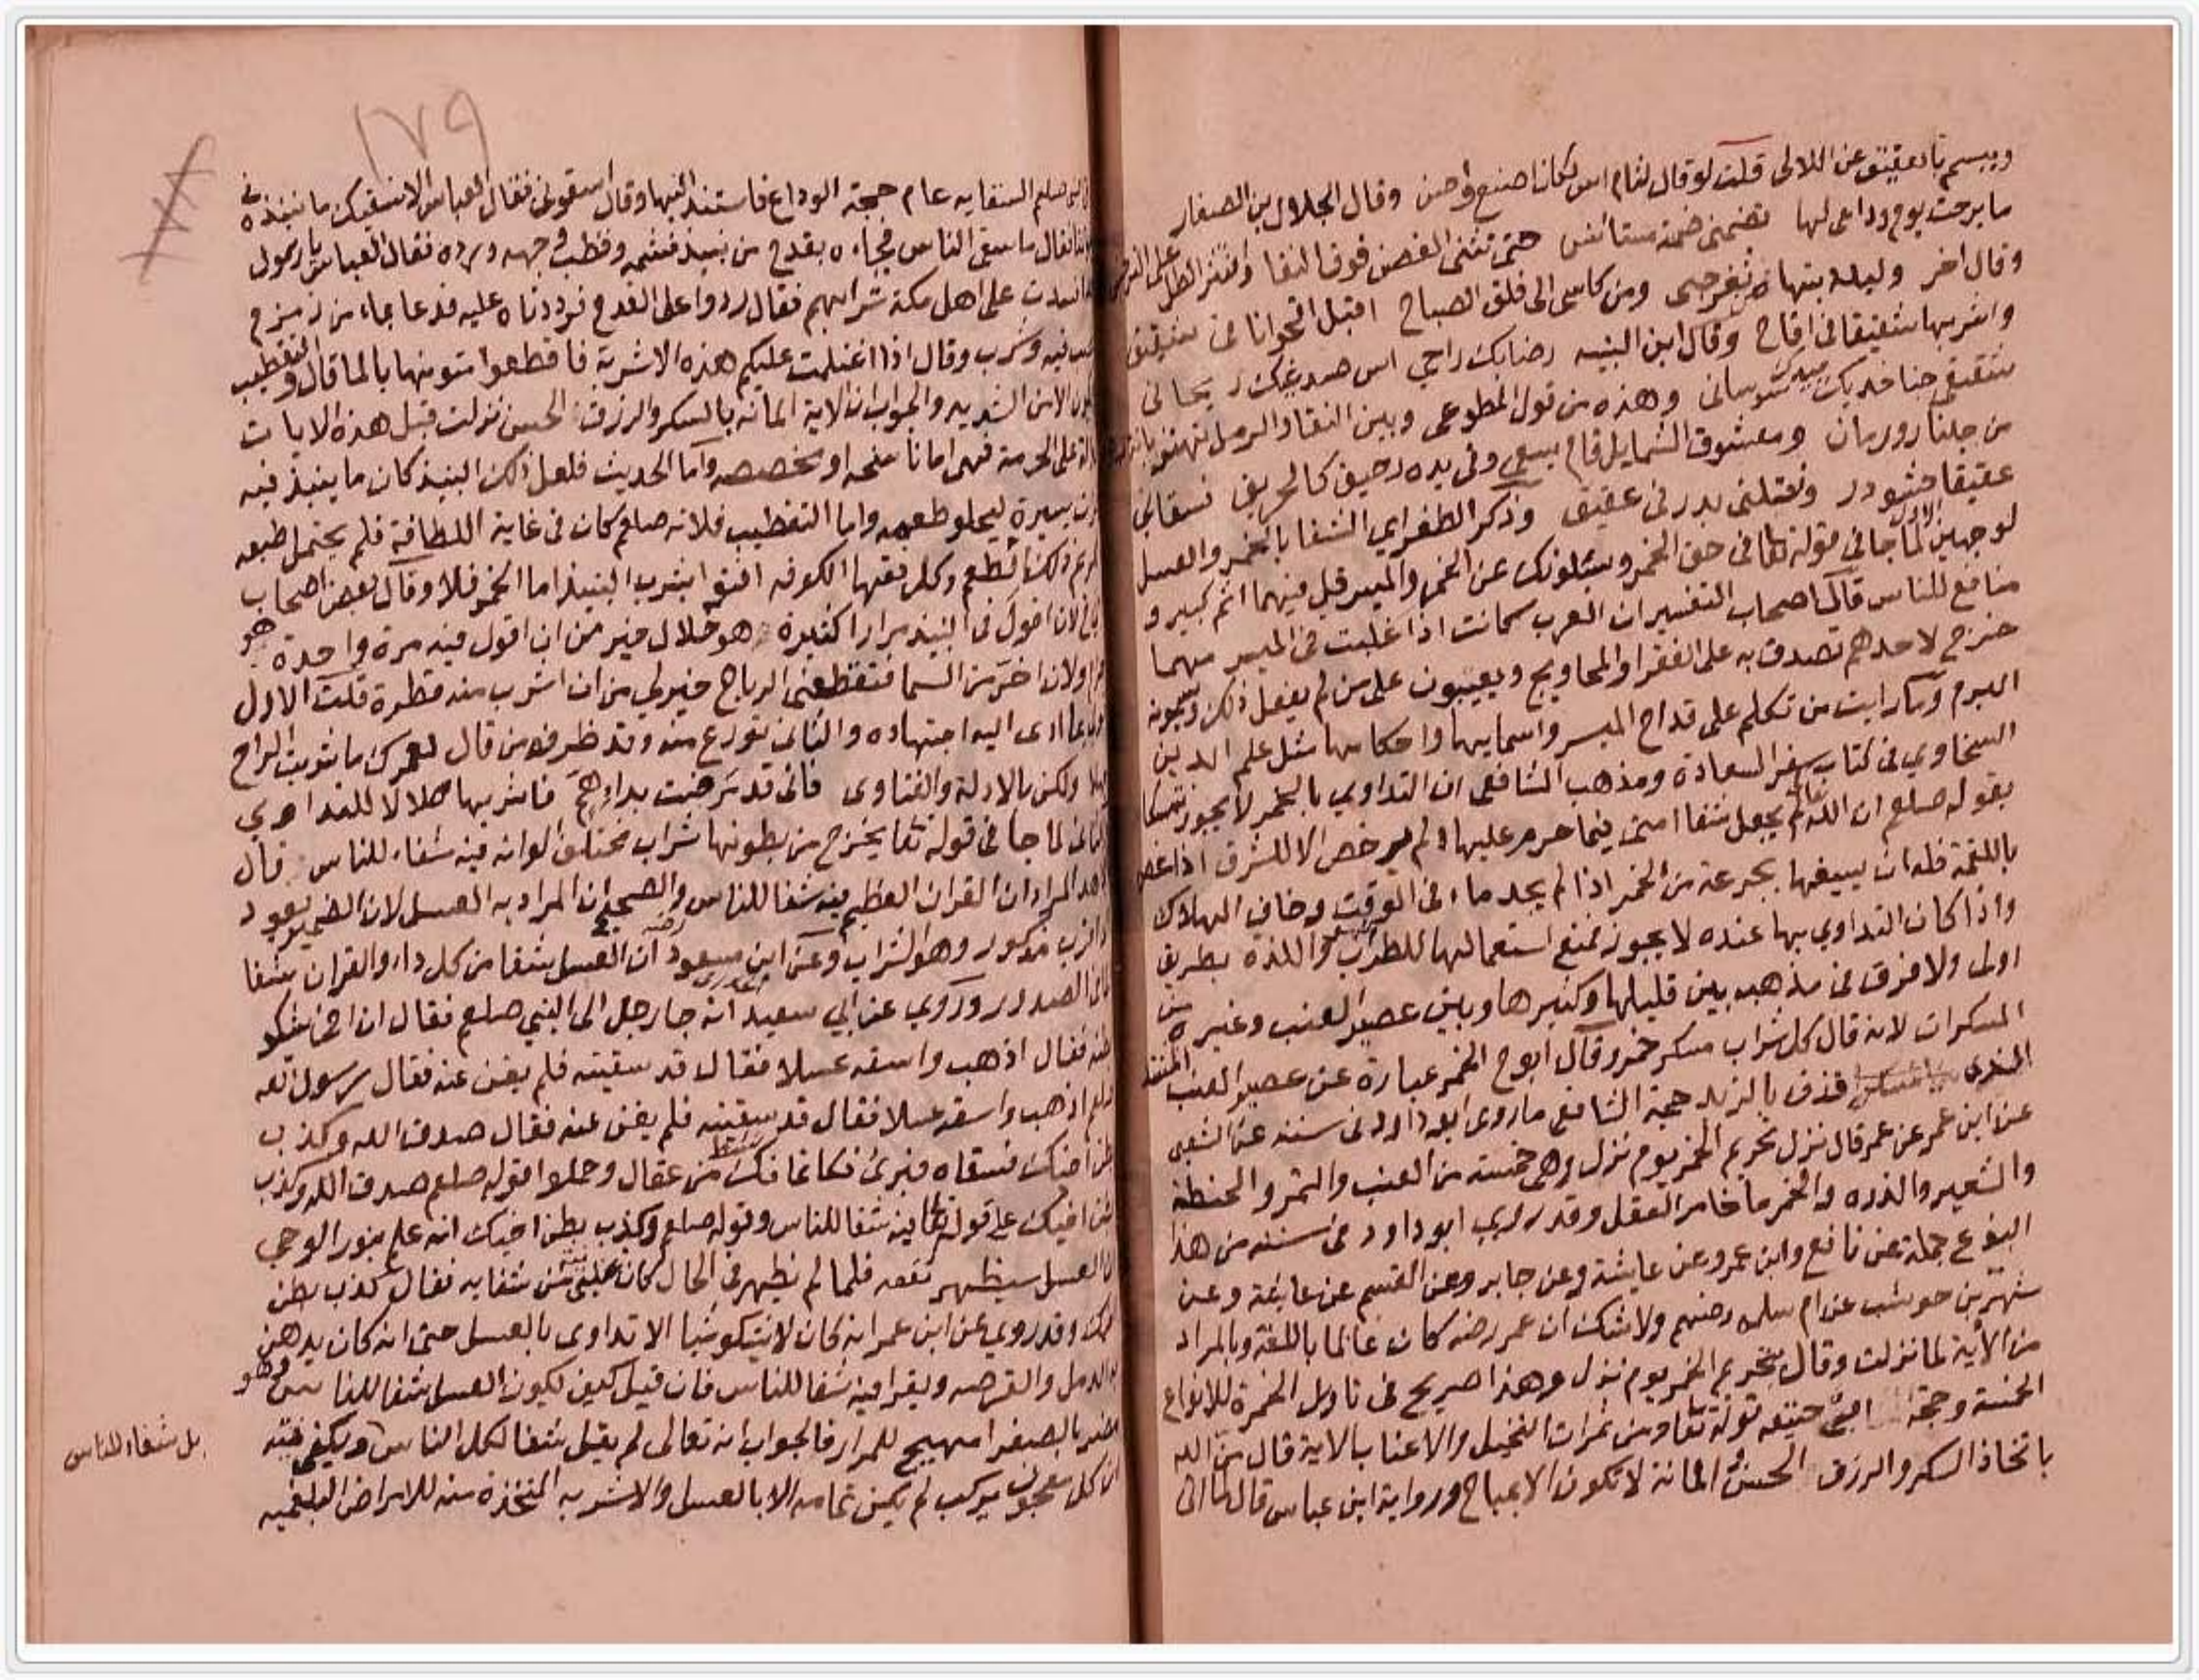 ويبسم بالعقيق عن اللالى قلت لو قال لثام اس لكان اصنع واحسن وقال الجلال بن الصفار
ما برحت يوم وداعى لها تضمنى ضمة مستانس حتى تثنى الغصن فوق النقا وانتثر الطل على النرجس
وقال اخر وليلة بتها من ثغر حبى ومن كاسى الى فلق الصباح اقبل اقحوانا فى شقيق
واشربها شقيقا فى اقاح وقال ابن النبيه رضابك راحي اس صدغيك ريحانى
شقيقى جنا خديك جيدك سوسانى وهذه من قول المطوعى وبين النقا والرمل تهتز بانة
من جلنار ورمان ومعشوق الشمايل قام يسعى وفى يده رحيق كالحريق فسقانى
عقيقا حشو در ونقلنى بدر فى عقيق وذكر الطغراي الشفا بالخمر والعسل
لوجهين الاول لما جا فى قوله تعالى فى حق الخمر ويسئلونك عن الخمر والميسر قل فيهما اثم كبير و
منافع للناس قال اصحاب التفسير ان العرب كانت اذا غلبت فى الميسر مهما
خرج لاحدهم تصدق به على الفقرا والمحاويج ويعيبون على من لم يفعل ذلك ويسمونه
البرم وما رايت من تكلم على قداح الميسر واسمايها واحكامها مثل علم الدين
السخاوي فى كتاب سفر السعادة ومذهب الشافعى ان التداوي بالخمر لا يجوز تمسكا
بقوله صلعم ان الله تعالى لم يجعل شفا امتى فيما حرم عليها ولم يرخص الا للشرق اذا غص
باللقمة فله ان يسيغها بجرعة من الخمر اذا لم يجد ماء فى الوقت وخاف الهلاك
واذا كان التداوي بها عنده لا يجوز فمنع استعمالها للطرب واللذة بطريق
اولى ولا فرق فى مذهبه بين قليلها وكثيرها وبين عصير العنب وغيره من
المسكرات لانه قال كل شراب مسكر خمر وقال ابو ح الخمر عبارة عن عصير العنب المشتد
الذى قذف بالزبد حجة الشافعى ما روى ابو داود فى سننه عن الشعبى
عن ابن عمر عن عمر قال نزل تحريم الخمر يوم نزل وهى خمسة من العنب والتمر والحنطة
والشعير والذرة والخمر ما خامر العقل وقد روي ابو داود فى سننه من هذا
النوع جملة عن نافع وابن عمر وعن عايشة وعن جابر وعن القسم عن عايشة وعن
شهر بن حوشب عن ام سلمه رضهم ولا شك ان عمر رضه كان عالما باللغة وبالمراد
من الاية لما نزلت وقال تحريم الخمر يوم نزل وهذا صريح فى تاويل الخمرة للانواع
الخمسة وحجة ابى حنيفه قوله تعا ومن ثمرات النخيل والاعناب الاية قال من الله
باتخاذ السكر والرزق الحسن المانة لا تكون الا بمباح ورواية ابن عباس قال لما اتى
١٧٩
صلعم السقايه عام حجة الوداع فاستند اليها وقال اسقونى فقال العباس الا نسقيك ما ننبذه فى
فقال ما يسقى الناس فجاءه بقدح من نبيذ فشمه وقطب وجهه ورده فقال العباس يا رسول
افسدت على اهل مكة شرابهم فقال ردوا على القدح فرددناه عليه فدعا بماء من زمزم
فصب فيه وشرب وقال اذا اغتلمت عليكم هذه الاشربة فاقطعوا متونها بالما قال والتقطيب
لا يكون الا من الشديد والجواب ان الاية المانه بالسكر والرزق الحسن نزلت قبل هذه الايات
على الحرمة فهى اما ناسخه او مخصصه واما الحديث فلعل ذلك النبيذ كان ما ينبذ فيه
يسيرة ليحلو طعمه واما التقطيب فلانه صلعم كان فى غاية اللطافة فلم يحتمل طبعه
ذلك الطعم وكل فقها الكوفه افتوا بشرب النبيذ اما الخمر فلا وقال بعض اصحاب
لان اقول فى النبيذ مرارا كثيرة هو حلال خير من ان اقول فيه مرة واحدة هو
ولان اخر من السما فتقطعنى الرياح خير لي من ان اشرب منه قطرة قلت الاول
ادى اليه اجتهاده والثانى تورع منه وقد ظرف من قال لعمرك ما شربت الراح
ولكن بالادلة والفتاوى فانى قد مرضت بداء هم فاشربها حلالا للتداوي
الثانى لما جا فى قوله تعا يخرج من بطونها شراب مختلف الوانه فيه شفاء للناس قال
المراد ان القران العظيم فيه شفا للناس والصحيح ان المراد به العسل لان الضمير يعود
اقرب مذكور وهو الشراب وعن ابن مسعود رضه ان العسل شفا من كل داء والقران شفا
لما فى الصدور وروي عن ابي سعيد الخدرى انه جا رجل الى النبي صلعم فقال ان اخى يشكو
بطنه فقال اذهب واسقه عسلا فقال قد سقيته فلم يغن عنه فقال رسول الله
صلعم اذهب واسقه عسلا فقال قد سقيته فلم يغن عنه فقال صدق الله وكذب
بطن اخيك فسقاه فبرئ فكانما نشط من عقال وحملوا قوله صلعم صدق الله وكذب
بطن اخيك على قوله تعالى فيه شفا للناس وقوله صلعم وكذب بطن اخيك انه علم بنور الوحي
ان العسل سيظهر نفعه فلما لم يظهر فى الحال كان من شفايه فقال كذب بطن
اخيك وقد روي عن ابن عمر انه كان لا يشكو شيا الا تداوى بالعسل حتى انه كان يدهن
به الدمل والقرصه ويقرا فيه شفا للناس فان قيل كيف يكون العسل شفا للناس وهو
مضر بالصفرا مهيج للمرار فالجواب انه تعالى لم يقل شفا لكل الناس ويكفى فيه
ان كل معجون مركب لم يكن تمامه الا بالعسل والاشربه المتخذة منه للامراض البلغميه
بل شفاء للناس